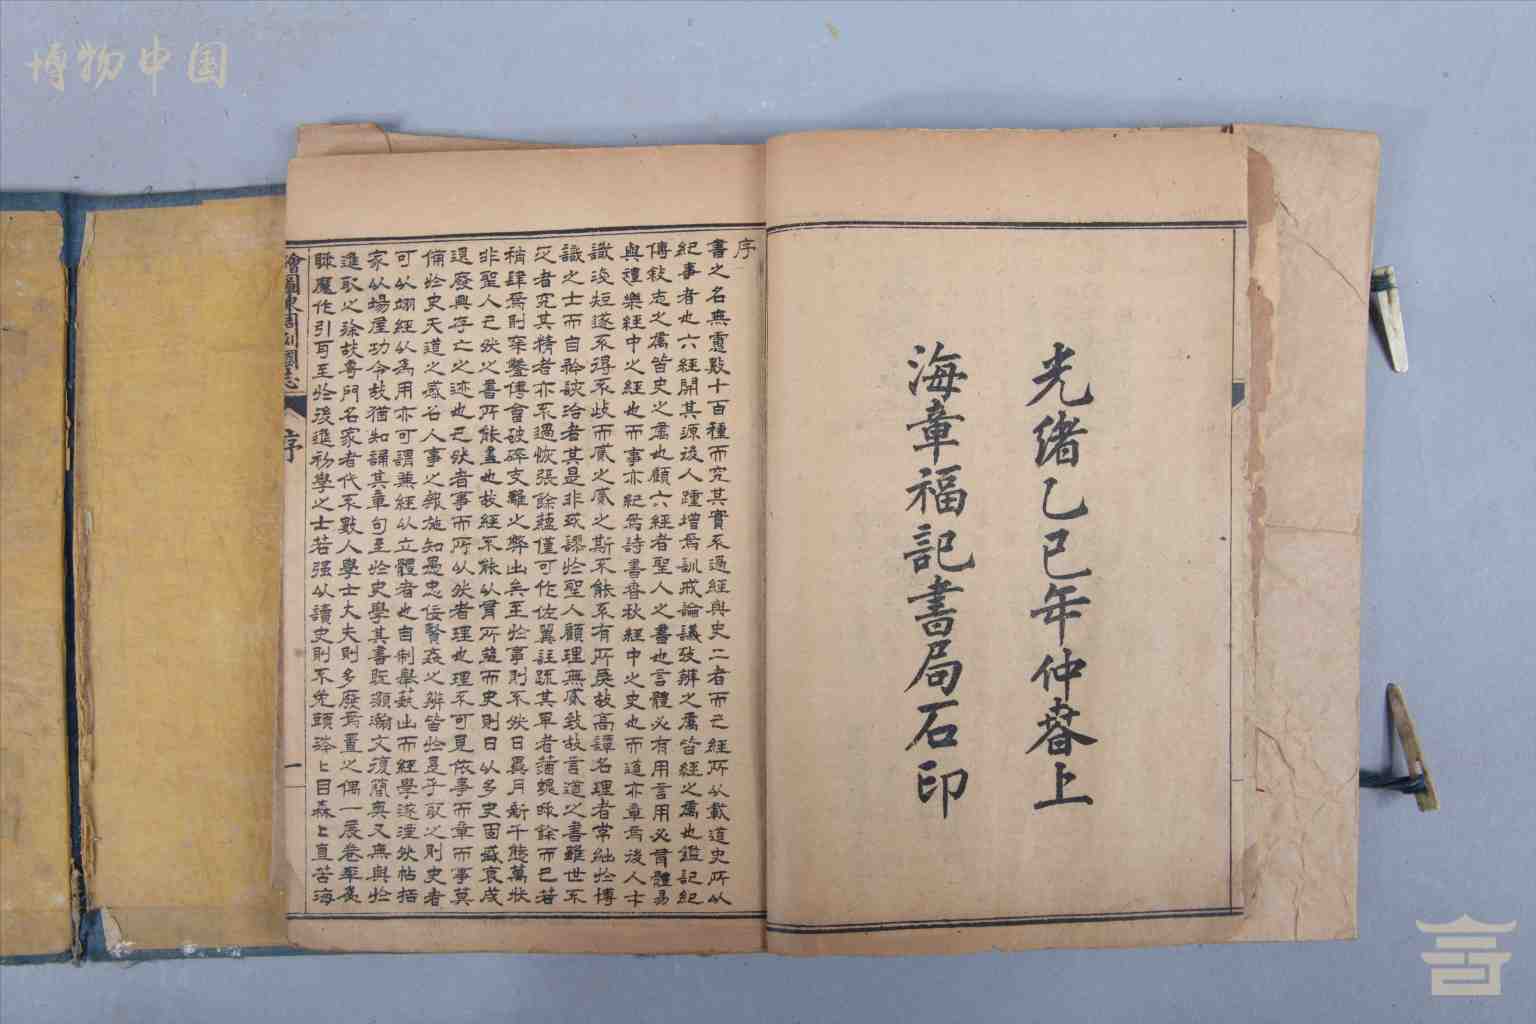 博物中国
光緒乙巳年仲春上
海章福記書局石印
序
書之名無慮數十百種而究其實不過經與史二者而已經所以載道史所以
紀事者也六經開其源後人踵增焉訓戒論議攷辨之屬皆經之屬也鑑記紀
傳敘志之屬皆史之屬也顧六經者聖人之書也言體必有用言用必有體易
與禮樂經中之經也而事亦紀焉詩書春秋經中之史也而道亦章焉後人才
識淺短遂不得不歧而貳之貳之斯不能不有所戾故高譚名理者常絀於博
識之士而自矜該洽者其是非或謬於聖人顧理無貳致故言道之書雖世不
乏者究其精者亦不過恢張餘蘊僅可作佐翼註疏其卑者餘而已若
稍肆焉則穿鑿傅會破碎支離之弊出矣至於事則不然日異月新千態萬狀
非聖人已然之書所能盡也故經不能以有所益而史則日以多史固盛衰成
敗廢興存亡之迹也已然者事而所以然者理也理不可見依事而章而事莫
備於史天道之感召人事之報施知愚忠佞賢姦之辨皆於是乎取之則史者
可以翊經以為用亦可謂兼經以立體者也自制舉藝出而經學遂湮然帖括
家以場屋功令故猶知誦其章句至於史學其書既灝瀚文復簡奧又無與於
進取之途故專門名家者代不數人學士大夫則多廢焉置之偶一展卷率爲
睡魔作引耳至於後進初學之士若强以讀史則不免頭涔ヒ目森ヒ直苦海
繪圖東周列國志
序
一